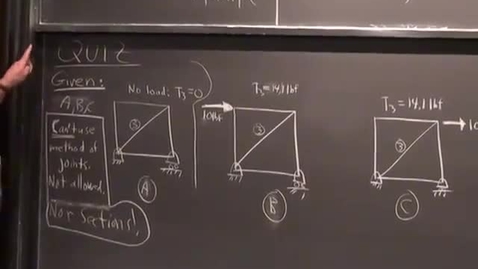 QUIZ
Given:
A, B, C
Can't use
method of
joints.
Not allowed.
Nor Sections!
No load: T3=0
3
A
T3=14,1 lbf
10 lbf
3
B
T3=14,1 lbf
10
3
C